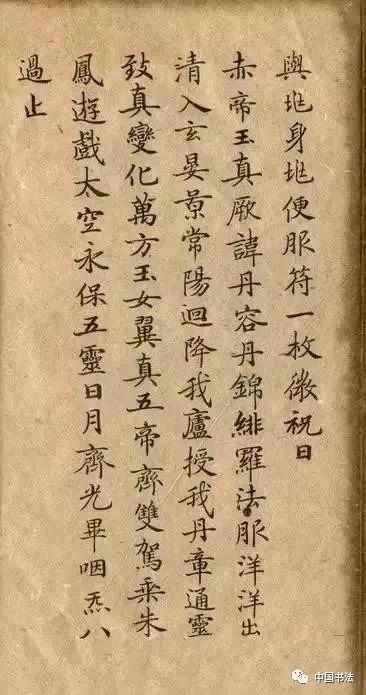 與𡉏身𡉏便服符一枚微祝曰
赤帝玉真厥諱丹容丹錦緋羅法服洋洋出
清入玄晏景常陽迴降我廬授我丹章通靈
致真變化萬方玉女翼真五帝齊雙駕乘朱
鳳遊戲太空永保五靈日月齊光畢咽炁八
過止
中国书法